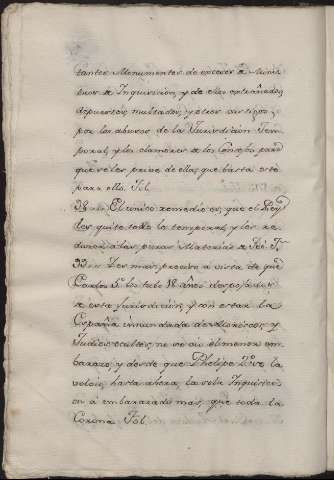 tantes Monumentos de excesos de Minis
tros de Inquisicion, y de ellos extrañados,
depuestos, multados, y otros castigos,
por los abusos de la Jurisdicion Tem
poral, y los clamores de los Consejos para
que se les prive de ellas que basta esto
para ello. Fol.
38. El unico remedio es, que el Rey
les quite toda la temporal, y los re
duzca a las puras Materias de Fee. F.
39. Ser mas preciso a vista de que
Carlos 5.º los tubo 18 años desposehidos
de esta jurisdicion, y con estar la
España innundada de Moriscos, y
Judios ocultos, no se vio el menor em
barazo, y desde que Phelipe 2.º se la
volvio, hasta ahora, la sola Inquisici
on à embarazado mas, que toda la
Corona Fol.